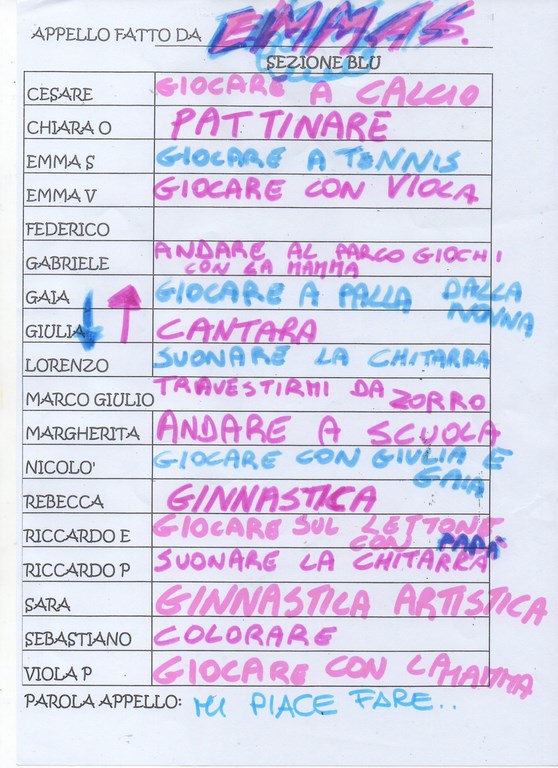 APPELLO FATTO DA EMMA S.
SEZIONE BLU
CESARE GIOCARE A CALCIO
CHIARA O PATTINARE
EMMA S GIOCARE A TENNIS
EMMA V GIOCARE CON VIOLA
FEDERICO
GABRIELE ANDARE AL PARCO GIOCHI
CON LA MAMMA
GAIA GIOCARE A PALLA DALLA
NONNA
GIULIA CANTARA
LORENZO SUONARE LA CHITARRA
MARCO GIULIO TRAVESTIRMI DA ZORRO
MARGHERITA ANDARE A SCUOLA
NICOLO' GIOCARE CON GIULIA E
GAIA
REBECCA GINNASTICA
RICCARDO E GIOCARE SUL LETTONE
CON PAPA'
RICCARDO P SUONARE LA CHITARRA
SARA GINNASTICA ARTISTICA
SEBASTIANO COLORARE
VIOLA P GIOCARE CON LA MAMMA
PAROLA APPELLO: MI PIACE FARE..